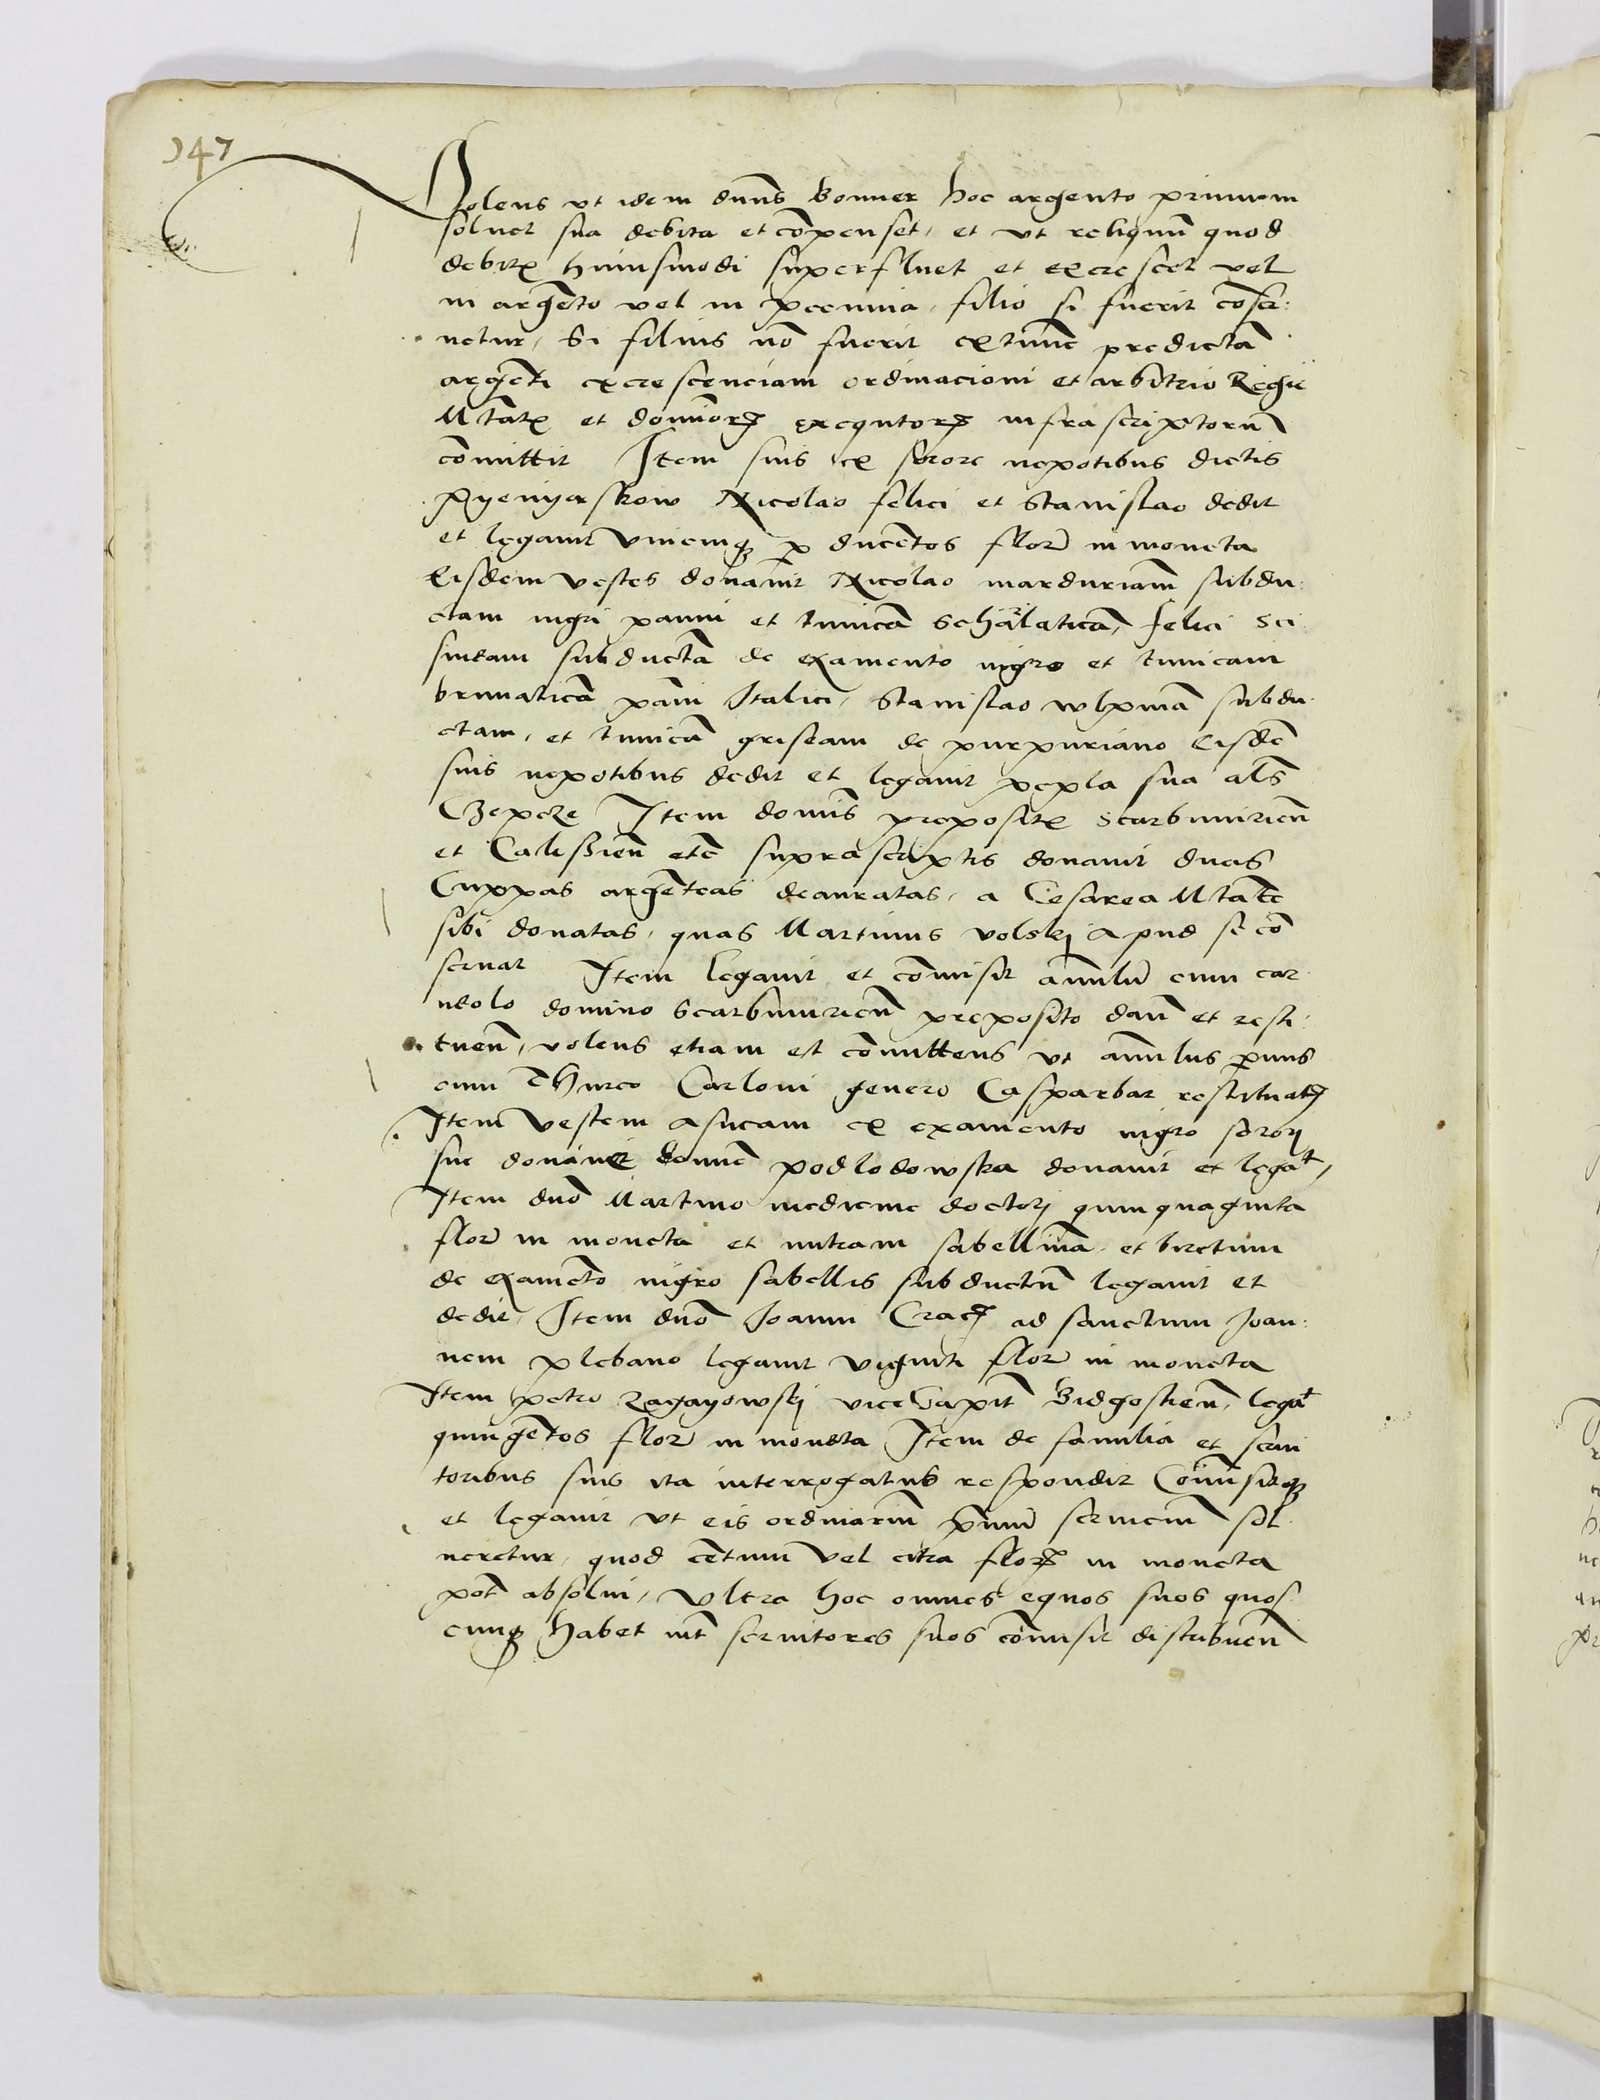 347
Volens vt idem dnns Bonner hoc argento primum
soluet sua debita et cōpenset, et vt reliquū quod
debitis huiusmodi superfluet et excrescet vel
in argēto vel in pecunia, filio si fuerit cōser:
uetur, Si filius nō fuerit extunc predictā
argēti excrescenciam ordinacioni et arbitrio Regie
Mtatis et dominorum exequtorum infrascriptorū
cōmittit Item suis ex sorore nepotibus dictis
Nicolao felici et Stanislao dedit
et legauit vnicuiq p ducētos flor in moneta
Eisdem vestes donauit Nicolao marduriam subdu:
ctam nigri panni et tunicā Scharlaticā, felici Sci
subductā de examento nigro et tunicam
brunaticā pāni Italici, Stanislao wlpinā subdu
ctam, et tunicā griseam de purpuriano Eisdē
suis nepotibus dedit et legauit pepla sua als
Czepcze Item domīs prepositis Scarbimirien
et Calissien etc suprascriptis donauit duas
Cuppas argēteas deauratas, a Cesarea Mtate
sibi donatas, quas Martinus volskj apud se cō
seruat Item legauit et cōmisit annulū cum car
neolo domino Scarbimirien preposito dan et resti:
tuen, volens etiam et cōmittens vt annulus
cum Thurco Carloni genero Casparbar restituatur
Item vestem asucam ex examento nigro sororj
sue donauit domne podlodowska donauit et legat,
Item dno Martino medicine doctorj quinquaginta
flor in moneta et mitram sabellinā, et biretum
de examēto nigro sabellis subductū legauit et
dedit, Item dno Joanni Crac ad sanctum Joan:
nem plebano legauit viginti flor in moneta
Item petro Zagayowskj viceCapit Bidgostien, legat
quingētos flor in moneta Item de familia et serui
toribus suis ita interrogatus respondit Cōmisitq
et legauit vt eis ordinariū seruiciū sol
ueretur, quod cētum vel citra flor in moneta
pot absolui, Vltra hoc omnes equos suos quos
cunq habet int seruitores suos cōmisit distribuen